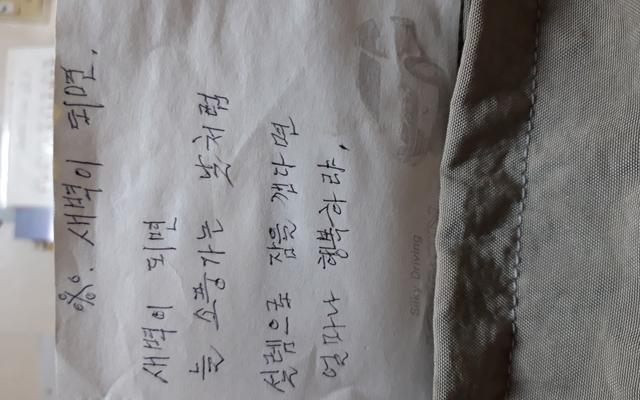 %. 새벽이 되면.
새벽이 되면
늘 소풍가는 날처럼
설렘으로 잠을 깬다면
얼마나 행복하랴.
Silky Driving